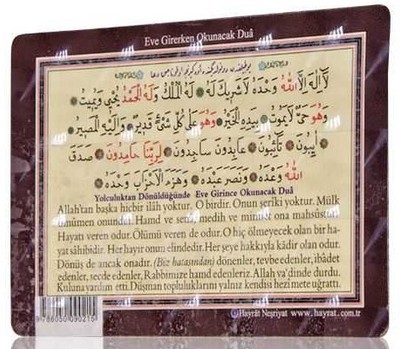 Eve Girerken Okunacak Duâ
لَا اِلٰهَ اِلَّا اللّٰهُ وَحْدَهُ لَا شَرِيكَ لَهُ ۞ لَهُ الْمُلْكُ وَلَهُ الْحَمْدُ يُحْيِي وَيُمِيتُ ۞
وَهُوَ حَيٌّ لَا يَمُوتُ ۞ بِيَدِهِ الْخَيْرُ ۞ وَهُوَ عَلٰى كُلِّ شَيْءٍ قَدِيرٌ ۞ وَاِلَيْهِ الْمَصِيرُ
۞ اٰيِبُونَ ۞ تَائِبُونَ ۞ عَابِدُونَ سَاجِدُونَ ۞ لِرَبِّنَا حَامِدُونَ ۞ صَدَقَ
اللّٰهُ ۞ وَعْدَهُ ۞ وَنَصَرَ عَبْدَهُ ۞ وَهَزَمَ الْاَحْزَابَ وَحْدَهُ ۞
Yolculuktan Dönüldüğünde Eve Girince Okunacak Duâ
Allah'tan başka hiçbir ilâh yoktur. O birdir. Onun şerîki yoktur. Mülk
umûmen onundur. Hamd ve senâ, medih ve minnet ona mahsûstur.
Hayatı veren odur. Ölümü veren de odur. O hiç ölmeyecek olan bir ha-
yat sâhibidir. Her hayır onun elindedir. Her şeye hakkıyla kâdir olan odur.
Dönüş de ancak onadır. (Biz hatasından) dönenler, tevbe edenler, ibâdet
edenler, secde edenler, Rabbimize hamd edenleriz. Allah va'dinde durdu.
Kuluna yardım etti. Düşman topluluklarını yalnız kendisi hezimete uğrattı.
9786050090215
Hayrât Neşriyat www.hayrat.com.tr